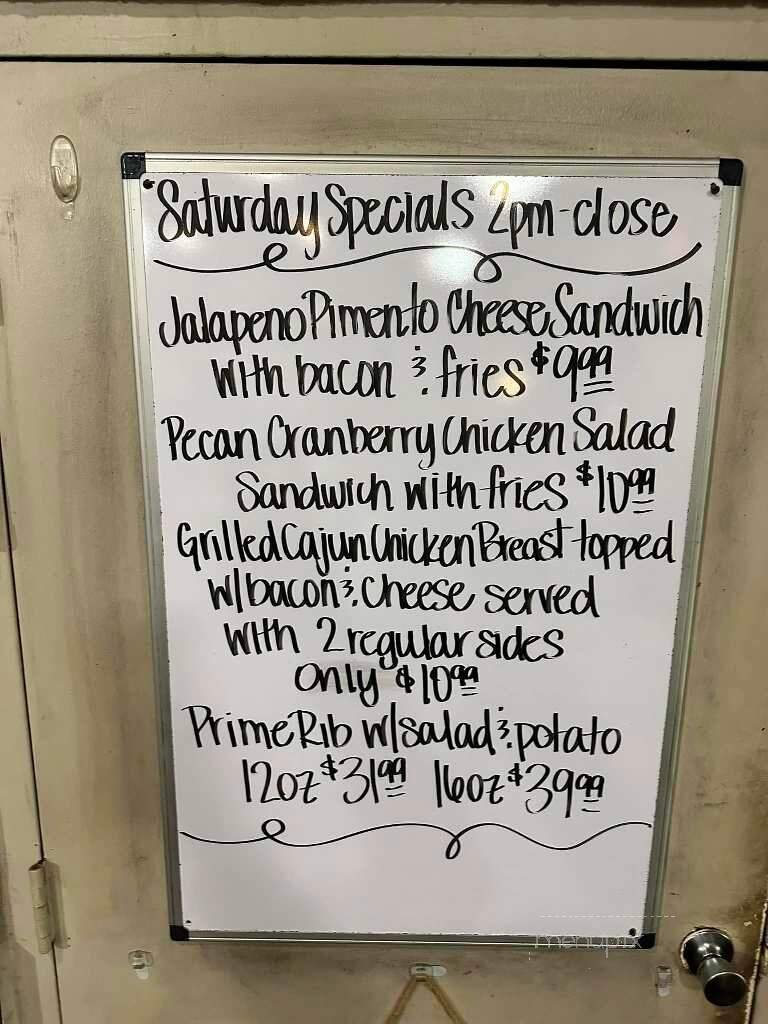 Saturday Specials 2pm-close
Jalapeno Pimento Cheese Sandwich
with bacon & fries $9.99
Pecan Cranberry Chicken Salad
Sandwich with fries $10.99
Grilled Cajun Chicken Breast topped
w/bacon & cheese served
with 2 regular sides
only $10.99
Prime Rib w/salad & potato
12oz $31.99 16oz $39.99
menupix